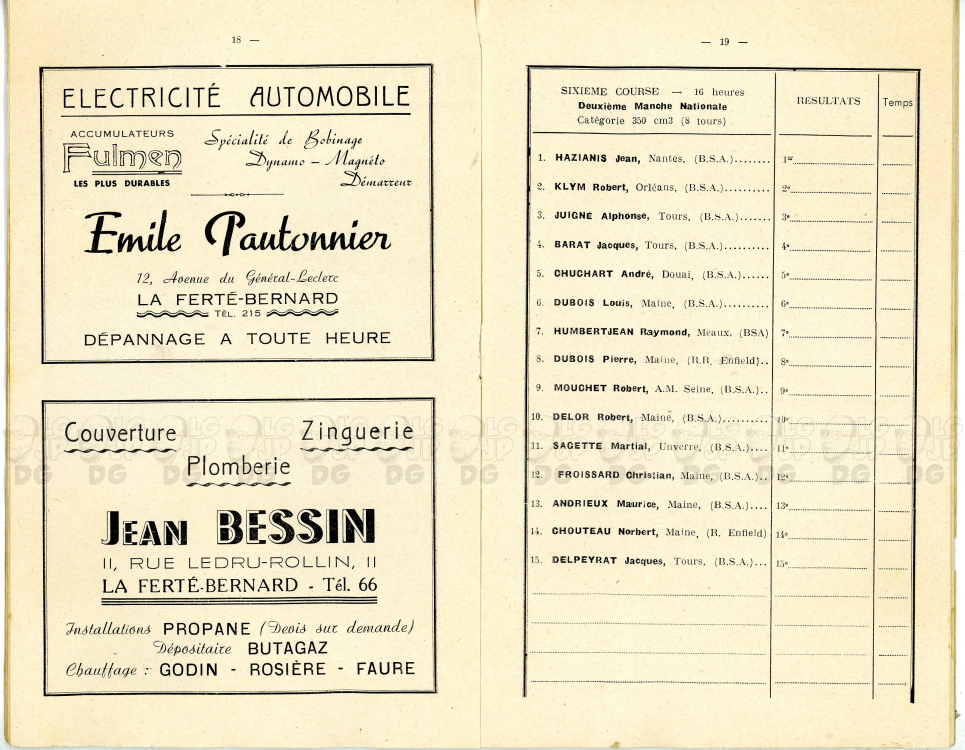 18 —
ELECTRICITÉ AUTOMOBILE
ACCUMULATEURS
Fulmen
LES PLUS DURABLES
Spécialité de Bobinage
Dynamo – Magnéto
Démarreur
Emile Pautonnier
12, Avenue du Général-Leclerc
LA FERTÉ-BERNARD
TÉL. 215
DÉPANNAGE A TOUTE HEURE
Couverture
Zinguerie
Plomberie
JEAN BESSIN
11, RUE LEDRU-ROLLIN, 11
LA FERTÉ-BERNARD - Tél. 66
Installations PROPANE (Devis sur demande)
Dépositaire BUTAGAZ
Chauffage : GODIN - ROSIÈRE - FAURE
— 19 —
SIXIÈME COURSE — 16 heures
Deuxième Manche Nationale
Catégorie 350 cm3 (8 tours)
RESULTATS
Temps
1. HAZIANIS Jean, Nantes, (B.S.A.)........ 1er
2. KLYM Robert, Orléans, (B.S.A.).......... 2e
3. JUIGNÉ Alphonse, Tours, (B.S.A.)....... 3e
4. BARAT Jacques, Tours, (B.S.A.).......... 4e
5. CHUCHART André, Douai, (B.S.A.)...... 5e
6. DUBOIS Louis, Maine, (B.S.A.).......... 6e
7. HUMBERTJEAN Raymond, Meaux, (BSA) 7e
8. DUBOIS Pierre, Maine, (R.R. Enfield).. 8e
9. MOUCHET Robert, A.M. Seine, (B.S.A.).. 9e
10. DELOR Robert, Maine, (B.S.A.)......... 10e
11. SAGETTE Martial, Unverre, (B.S.A.).... 11e
12. FROISSARD Christian, Maine, (B.S.A.).. 12e
13. ANDRIEUX Maurice, Maine, (B.S.A.).... 13e
14. CHOUTEAU Norbert, Maine, (R. Enfield) 14e
15. DELPEYRAT Jacques, Tours, (B.S.A.)... 15e